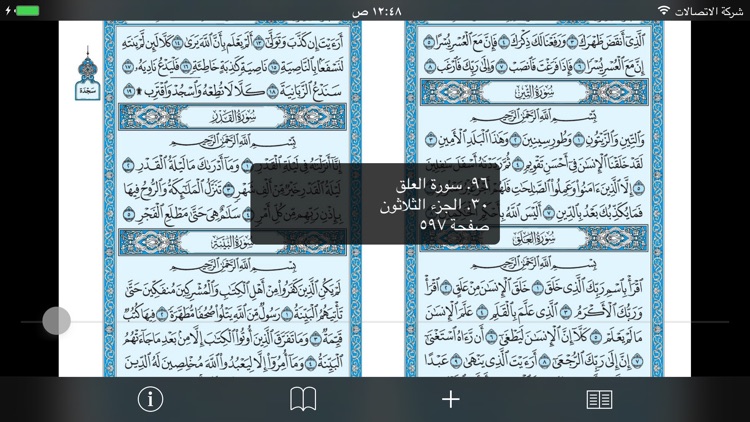 شركة الاتصالات
١٢:٤٨ ص
ٱلَّذِىٓ أَنقَضَ ظَهْرَكَ ٣ وَرَفَعْنَا لَكَ ذِكْرَكَ ٤ فَإِنَّ مَعَ ٱلْعُسْرِ يُسْرًا ٥
إِنَّ مَعَ ٱلْعُسْرِ يُسْرًا ٦ فَإِذَا فَرَغْتَ فَٱنصَبْ ٧ وَإِلَىٰ رَبِّكَ فَٱرْغَب ٨
سُورَةُ التِّينِ
بِسْمِ ٱللَّهِ ٱلرَّحْمَٰنِ ٱلرَّحِيمِ
وَٱلتِّينِ وَٱلزَّيْتُونِ ١ وَطُورِ سِينِينَ ٢ وَهَٰذَا ٱلْبَلَدِ ٱلْأَمِينِ ٣
لَقَدْ خَلَقْنَا ٱلْإِنسَٰنَ فِىٓ أَحْسَنِ تَقْوِيمٍ ٤ ثُمَّ رَدَدْنَٰهُ أَسْفَلَ سَٰفِلِينَ
٥ إِلَّا ٱلَّذِينَ ءَامَنُوا۟ وَعَمِلُوا۟ ٱلصَّٰلِحَٰتِ
فَمَا يُكَذِّبُكَ بَعْدُ بِٱلدِّينِ ٧ أَلَيْسَ ٱللَّهُ بِأَحْكَمِ
سُورَةُ العَلَقِ
بِسْمِ ٱللَّهِ ٱلرَّحْمَٰنِ ٱلرَّحِيمِ
ٱقْرَأْ بِٱسْمِ رَبِّكَ ٱلَّذِى خَلَقَ ١ خَلَقَ ٱلْإِنسَٰنَ مِنْ عَلَقٍ ٢ ٱقْرَأْ
وَرَبُّكَ ٱلْأَكْرَمُ ٣ ٱلَّذِى عَلَّمَ بِٱلْقَلَمِ ٤ عَلَّمَ ٱلْإِنسَٰنَ
مَا لَمْ يَعْلَمْ ٥ كَلَّآ إِنَّ ٱلْإِنسَٰنَ لَيَطْغَىٰٓ ٦ أَن رَّءَاهُ ٱسْتَغْنَىٰٓ
٧ إِنَّ إِلَىٰ رَبِّكَ ٱلرُّجْعَىٰٓ ٨ أَرَءَيْتَ ٱلَّذِى يَنْهَىٰ ٩ عَبْدًا
أَرَءَيْتَ إِن كَذَّبَ وَتَوَلَّىٰٓ ١٣ أَلَمْ يَعْلَم بِأَنَّ ٱللَّهَ يَرَىٰ ١٤ كَلَّا لَئِن لَّمْ يَنتَهِ
لَنَسْفَعًۢا بِٱلنَّاصِيَةِ ١٥ نَاصِيَةٍ كَٰذِبَةٍ خَاطِئَةٍ ١٦ فَلْيَدْعُ نَادِيَهُۥ ١٧
سَنَدْعُ ٱلزَّبَانِيَةَ ١٨ كَلَّا لَا تُطِعْهُ وَٱسْجُدْ وَٱقْتَرِب ۩ ١٩
سَجْدَة
سُورَةُ القَدْرِ
بِسْمِ ٱللَّهِ ٱلرَّحْمَٰنِ ٱلرَّحِيمِ
إِنَّآ أَنزَلْنَٰهُ فِى لَيْلَةِ ٱلْقَدْرِ ١ وَمَآ أَدْرَىٰكَ مَا لَيْلَةُ ٱلْقَدْرِ ٢
لَيْلَةُ ٱلْقَدْرِ خَيْرٌ مِّنْ أَلْفِ شَهْرٍ ٣ تَنَزَّلُ ٱلْمَلَٰٓئِكَةُ وَٱلرُّوحُ فِيهَا
بِإِذْنِ رَبِّهِم مِّن كُلِّ أَمْرٍ ٤ سَلَٰمٌ هِىَ حَتَّىٰ مَطْلَعِ ٱلْفَجْرِ ٥
سُورَةُ البَيِّنَةِ
بِسْمِ ٱللَّهِ ٱلرَّحْمَٰنِ ٱلرَّحِيمِ
لَمْ يَكُنِ ٱلَّذِينَ كَفَرُوا۟ مِنْ أَهْلِ ٱلْكِتَٰبِ وَٱلْمُشْرِكِينَ مُنفَكِّينَ حَتَّىٰ
تَأْتِيَهُمُ ٱلْبَيِّنَةُ ١ رَسُولٌ مِّنَ ٱللَّهِ يَتْلُوا۟ صُحُفًا مُّطَهَّرَةً ٢ فِيهَا كُتُبٌ
قَيِّمَةٌ ٣ وَمَا تَفَرَّقَ ٱلَّذِينَ أُوتُوا۟ ٱلْكِتَٰبَ إِلَّا مِنۢ بَعْدِ مَا جَآءَتْهُمُ
ٱلْبَيِّنَةُ ٤ وَمَآ أُمِرُوٓا۟ إِلَّا لِيَعْبُدُوا۟ ٱللَّهَ مُخْلِصِينَ لَهُ ٱلدِّينَ
٩٦. سورة العلق
٣٠. الجزء الثلاثون
صفحة ٥٩٧